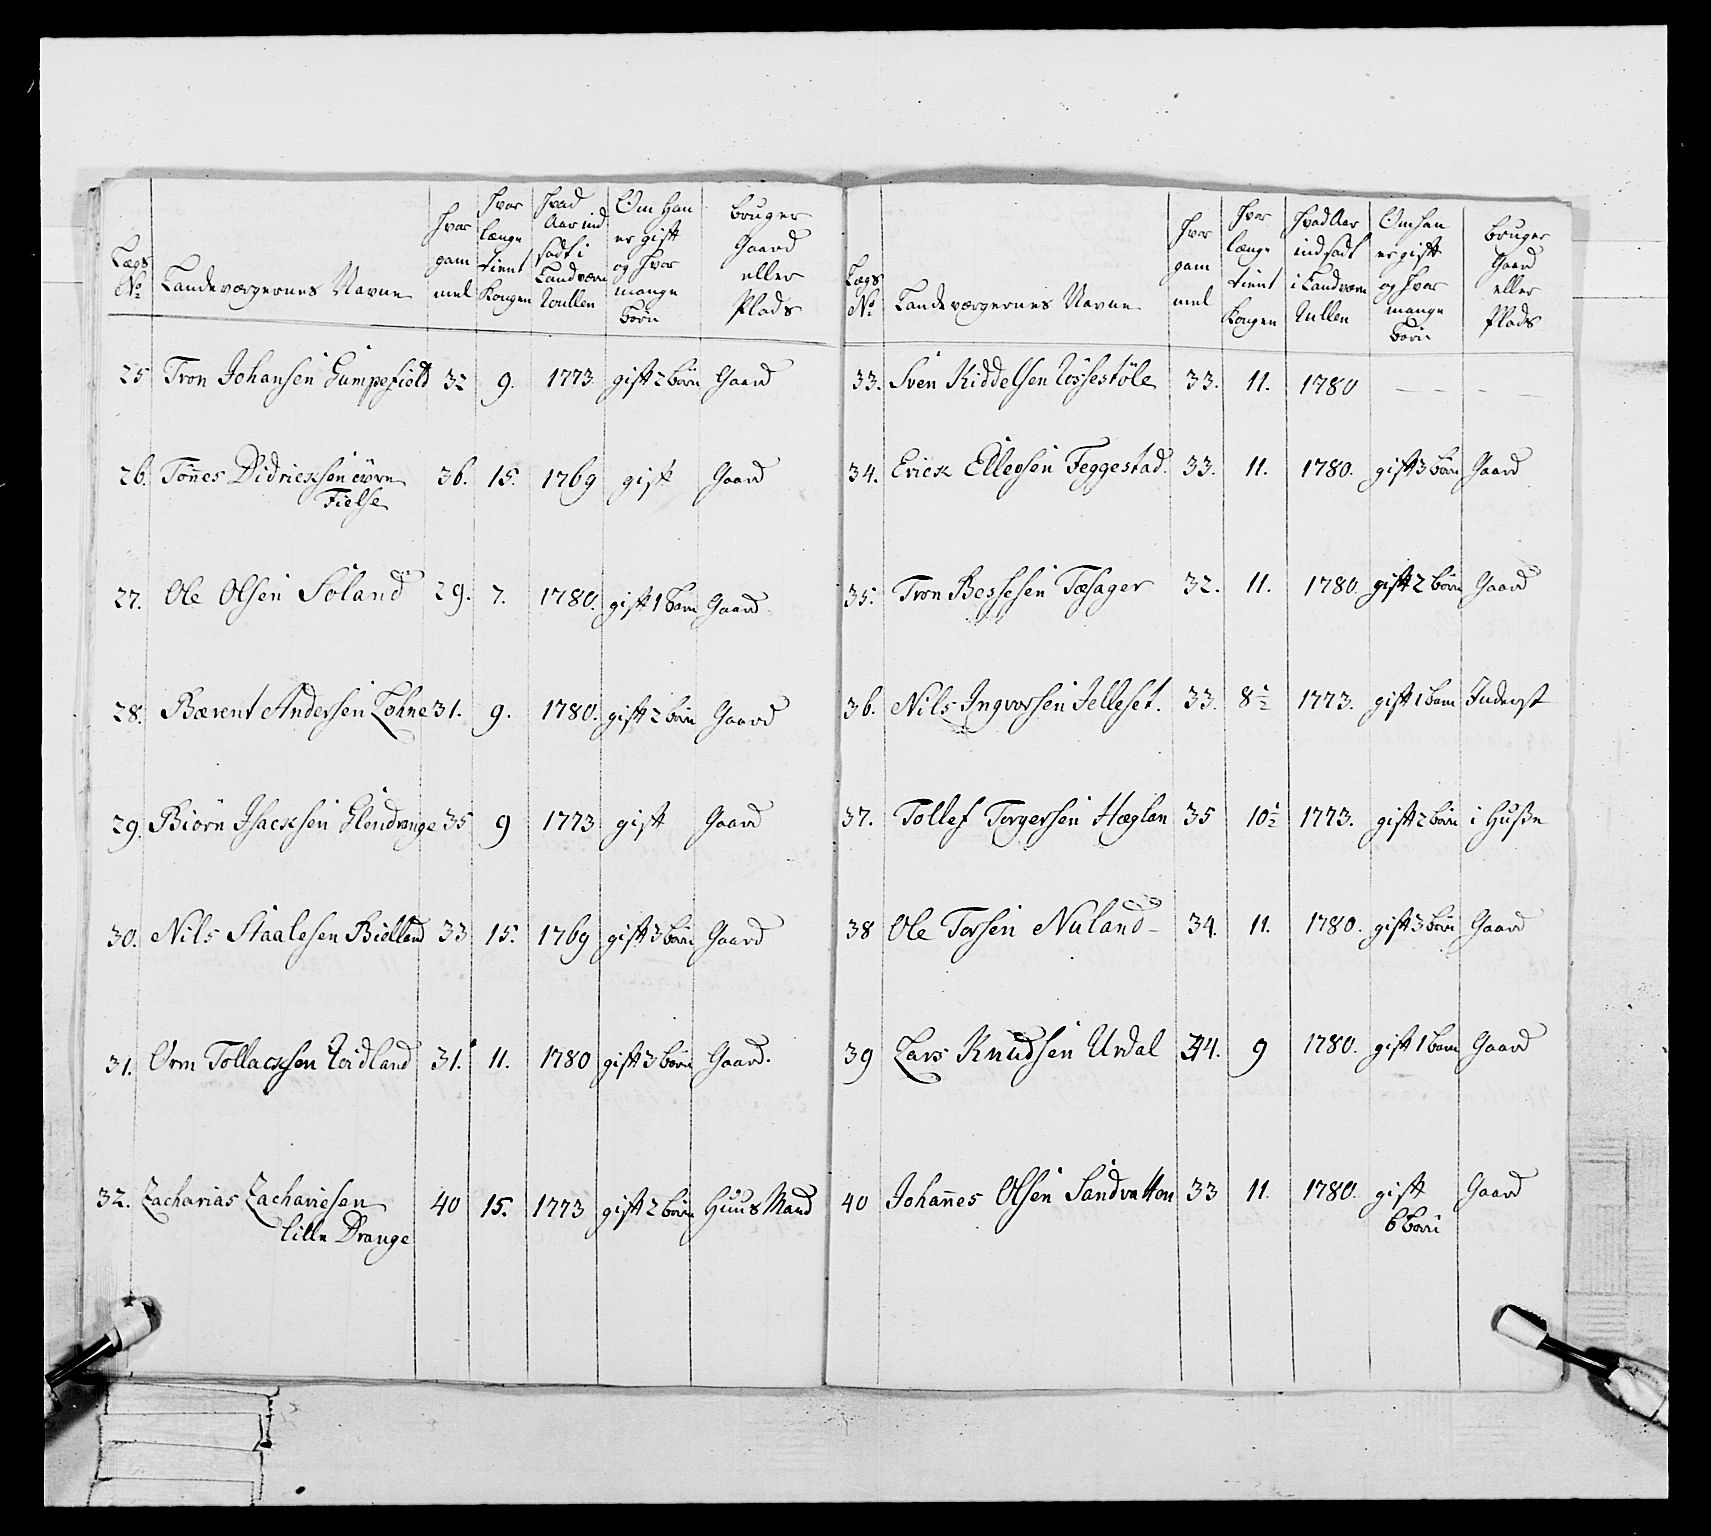 Lægs No | Landeværgernes Navne | Hvor gammel | Hvor længe tient Kongen | Hvad Aar indsadt i Landværn Rullen | Om Han er gift og Hvor mange Børn | bruger Gaard eller Plads
25 Tron Johansen Gumpefield 32 9. 1773 gift 2 børn Gaard
26. Tønes Didricksen øvre 36. 15. 1769 gift Gaard
Fielse
27. Ole Olsen Søland 29. 7. 1780. gift 1 barn Gaard
28. Bærent Andersen Lohne 31. 9. 1780. gift 2 børn Gaard
29. Biørn Isacksen Glendrange 35 9 1773 gift Gaard
30. Nils Staalesen Bielland 33 15. 1769 gift 3 børn Gaard
31. Orm Tollacksen Roidland 31. 11. 1780 gift 3 børn Gaard.
32. Zacharias Zachariesen 40 15. 1773 gift 2 børn Huus Mand
lille Drange
Lægs No | Landeværgernes Navne | Hvor gammel | Hvor længe tient Kongen | Hvad Aar indsadt i Landværn Rullen | Om han er gift og Hvor mange Børn | bruger Gaard eller Plads
33. Sven Kiddelsen Røssestøle 33. 11. 1780 — — - -
34. Erick Ellevsen Feggestad. 33. 11. 1780. gift 3 børn Gaard
35. Tron Bessesen Tæsager 32. 11. 1780. gift 2 børn Gaard
36. Nils Ingvorsen Jelleset. 33. 8 1/2 1773. gift 1 barn Inderst
37. Tollef Torgersen Hæglan 35 10 1/2 1773. gift 2 børn i Huße
38 Ole Torsen Nuland 34. 11. 1780. gift 3 børn Gaard
39 Lars Knudsen Urdal 44. 9 1780. gift 1 barn Gaard
40 Johannes Olsen Sandvatten 33 11. 1780. gift Gaard
6 børn